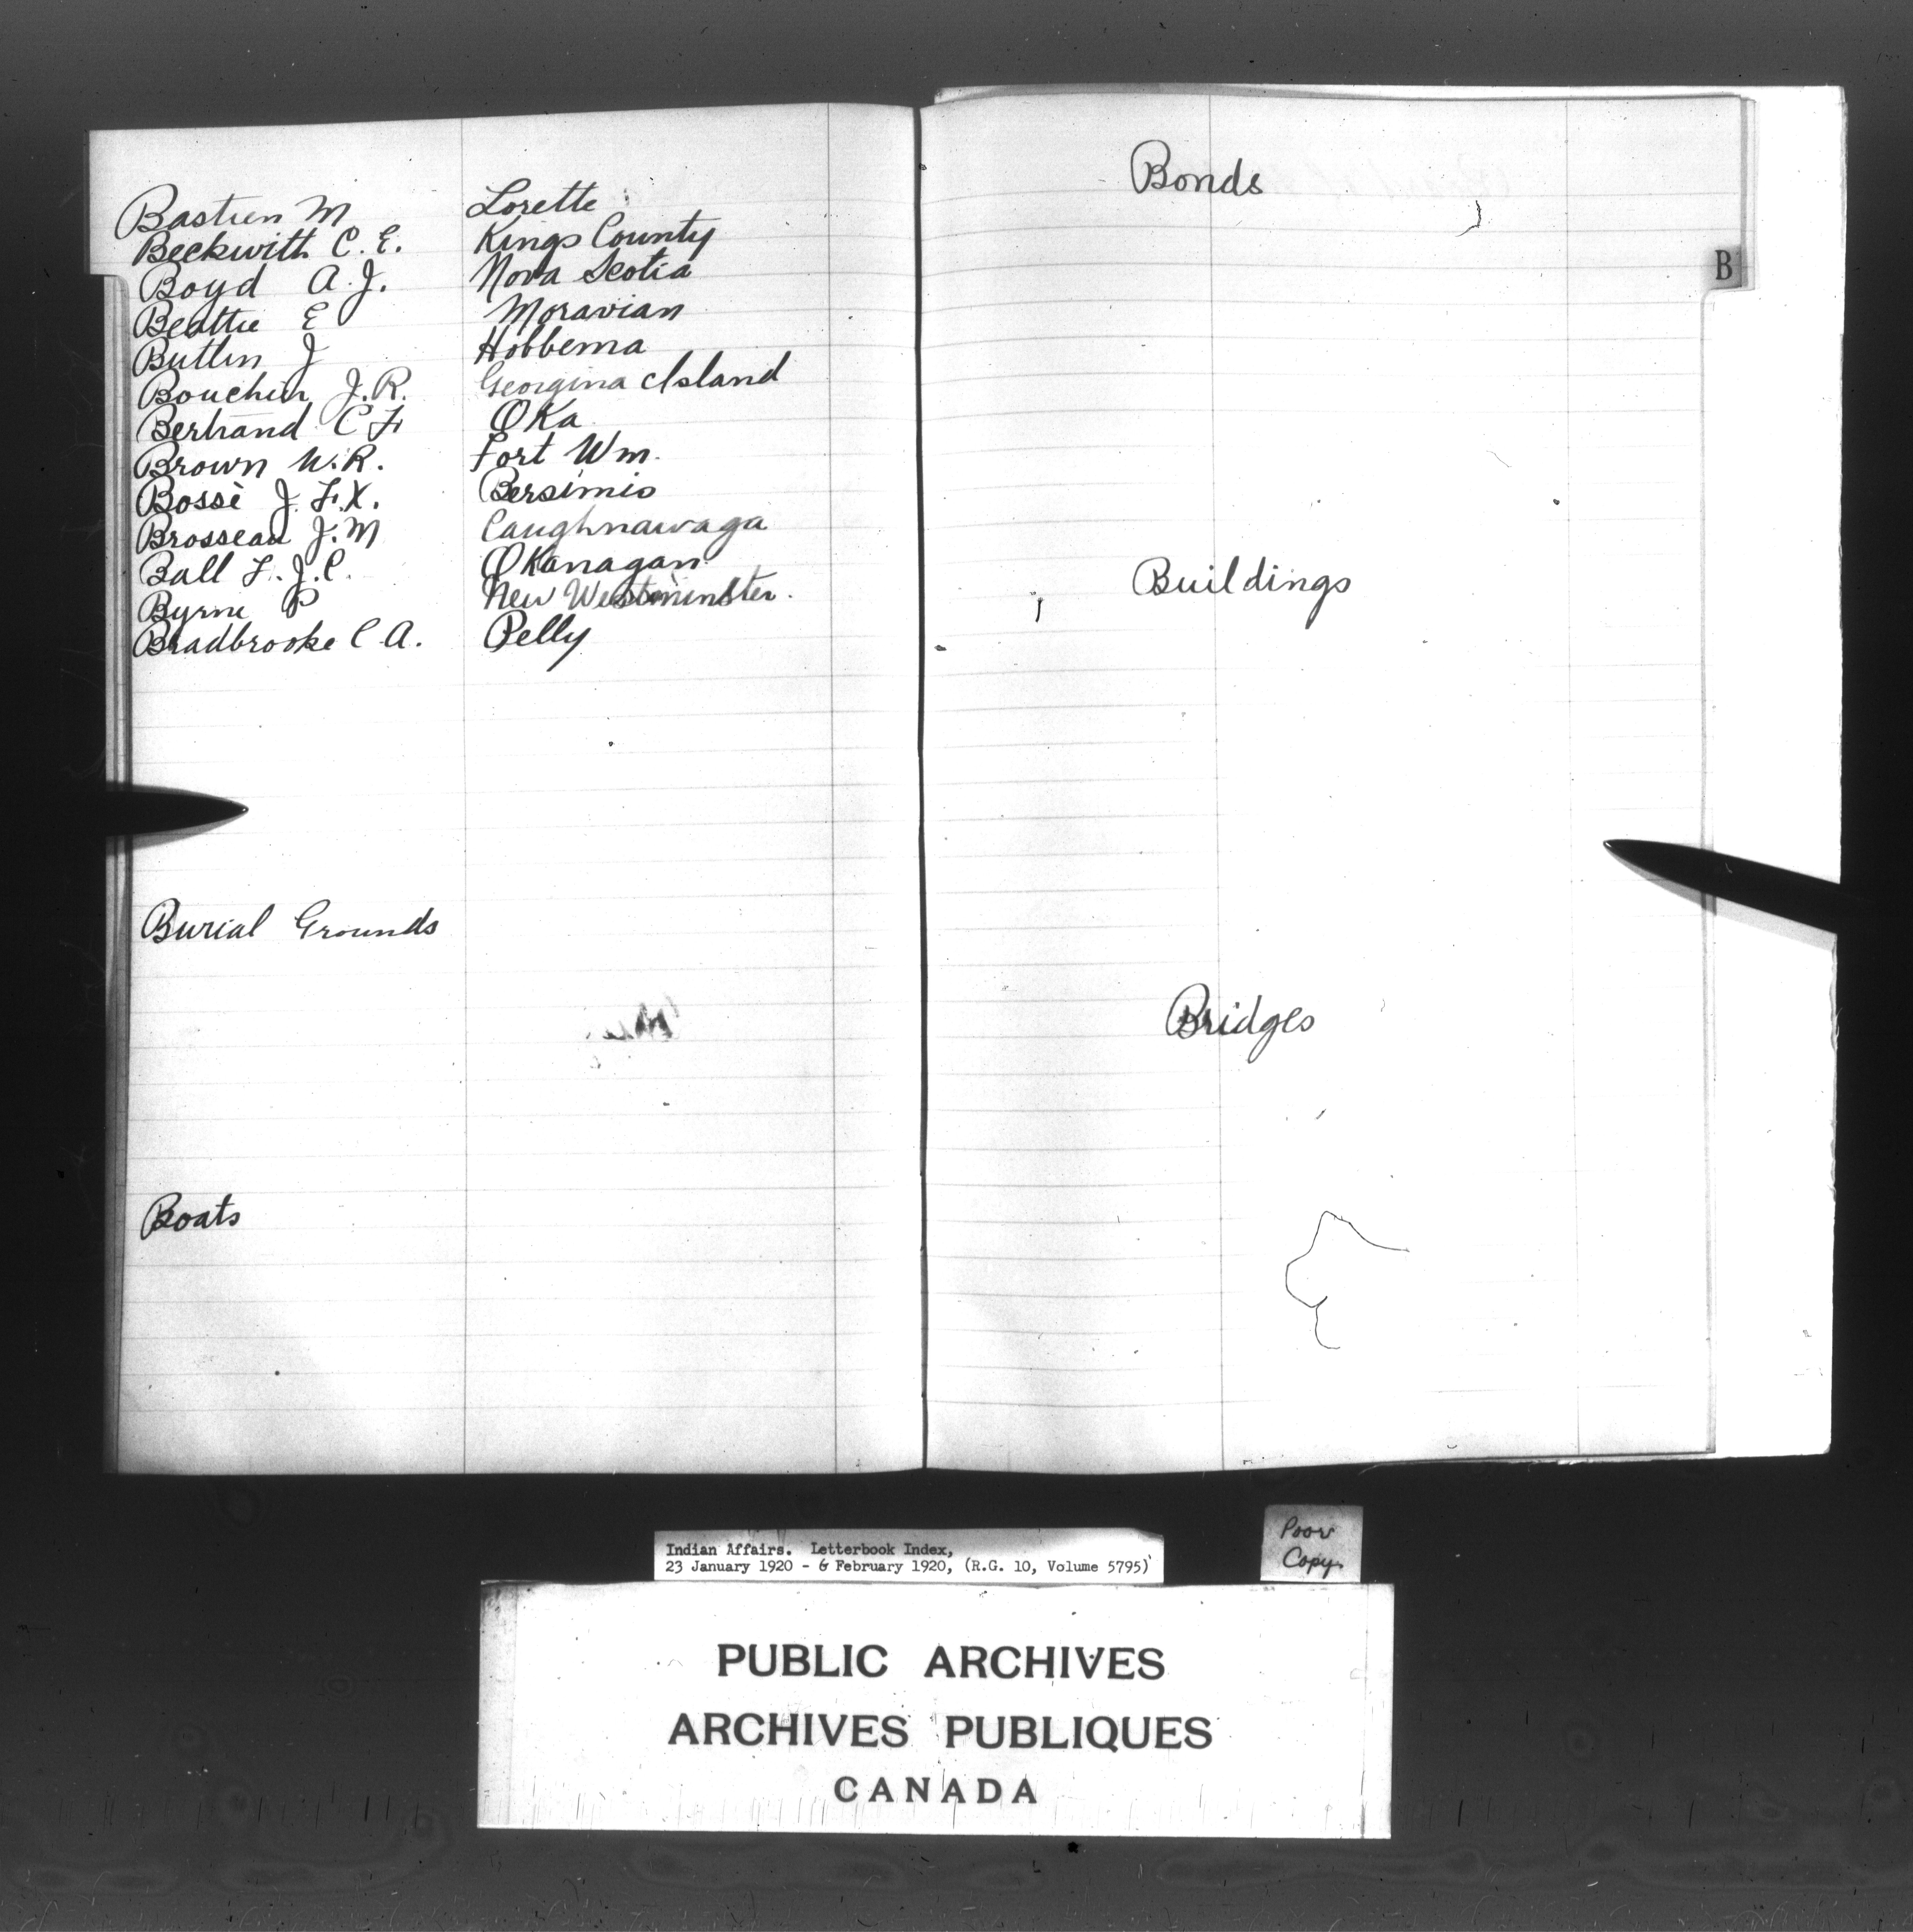 Bastien M Lorette
Beckwith C. E. Kings County
Boyd A. J. Nova Scotia
Beattie E Moravian
Butlin J Hobbema
Bouchin J. R. Georgina Island
Bertrand C F Oka
Brown W. R. Fort Wm.
Bossè J. F. X. Bersimis
Brosseau J. M Caughnawaga
Ball F. J. C. Okanagan
Byrne P New Westminster.
Bradbrooke C. A. Pelly
Burial Grounds
Boats
Bonds
B
Buildings
Bridges
Indian Affairs. Letterbook Index,
23 January 1920 - 6 February 1920, (R.G. 10, Volume 5795)
Poor
Copy
PUBLIC ARCHIVES
ARCHIVES PUBLIQUES
CANADA